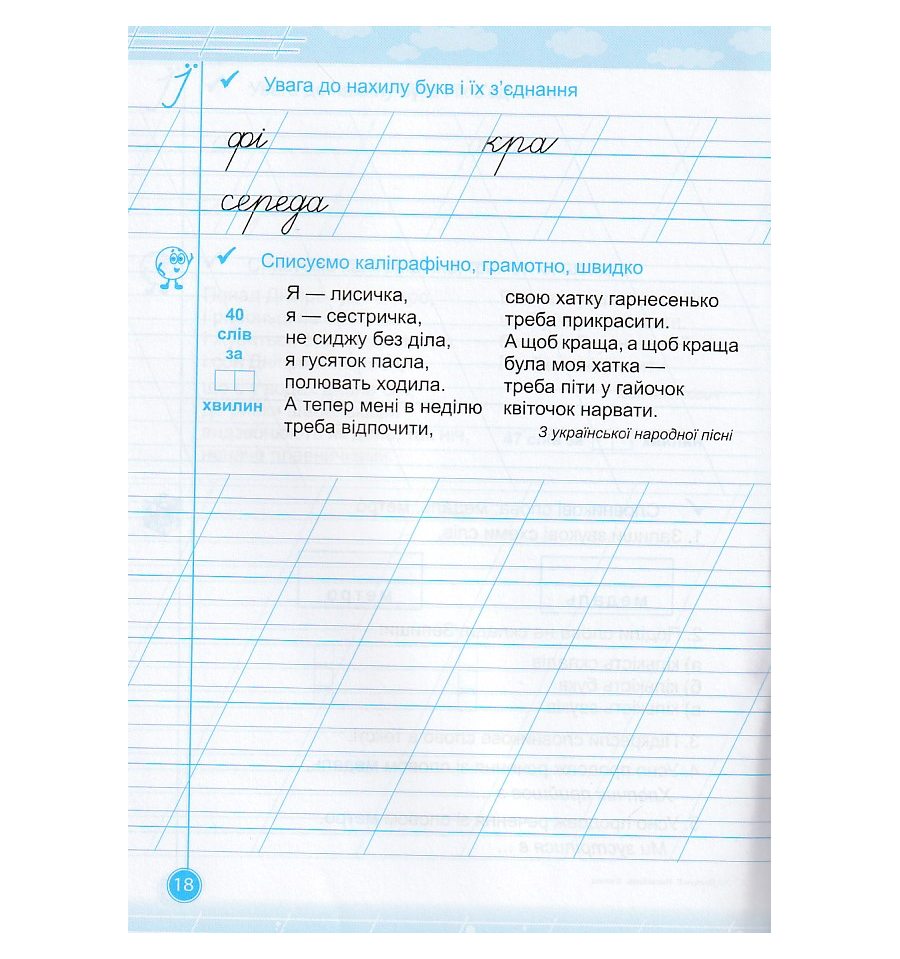 Ї
Увага до нахилу букв і їх з’єднання
фі кра
середа
Списуємо каліграфічно, грамотно, швидко
40
слів
за
хвилин
Я — лисичка,
я — сестричка,
не сиджу без діла,
я гусяток пасла,
полювать ходила.
А тепер мені в неділю
треба відпочити,
свою хатку гарнесенько
треба прикрасити.
А щоб краща, а щоб краща
була моя хатка —
треба піти у гайочок
квіточок нарвати.
З української народної пісні
18